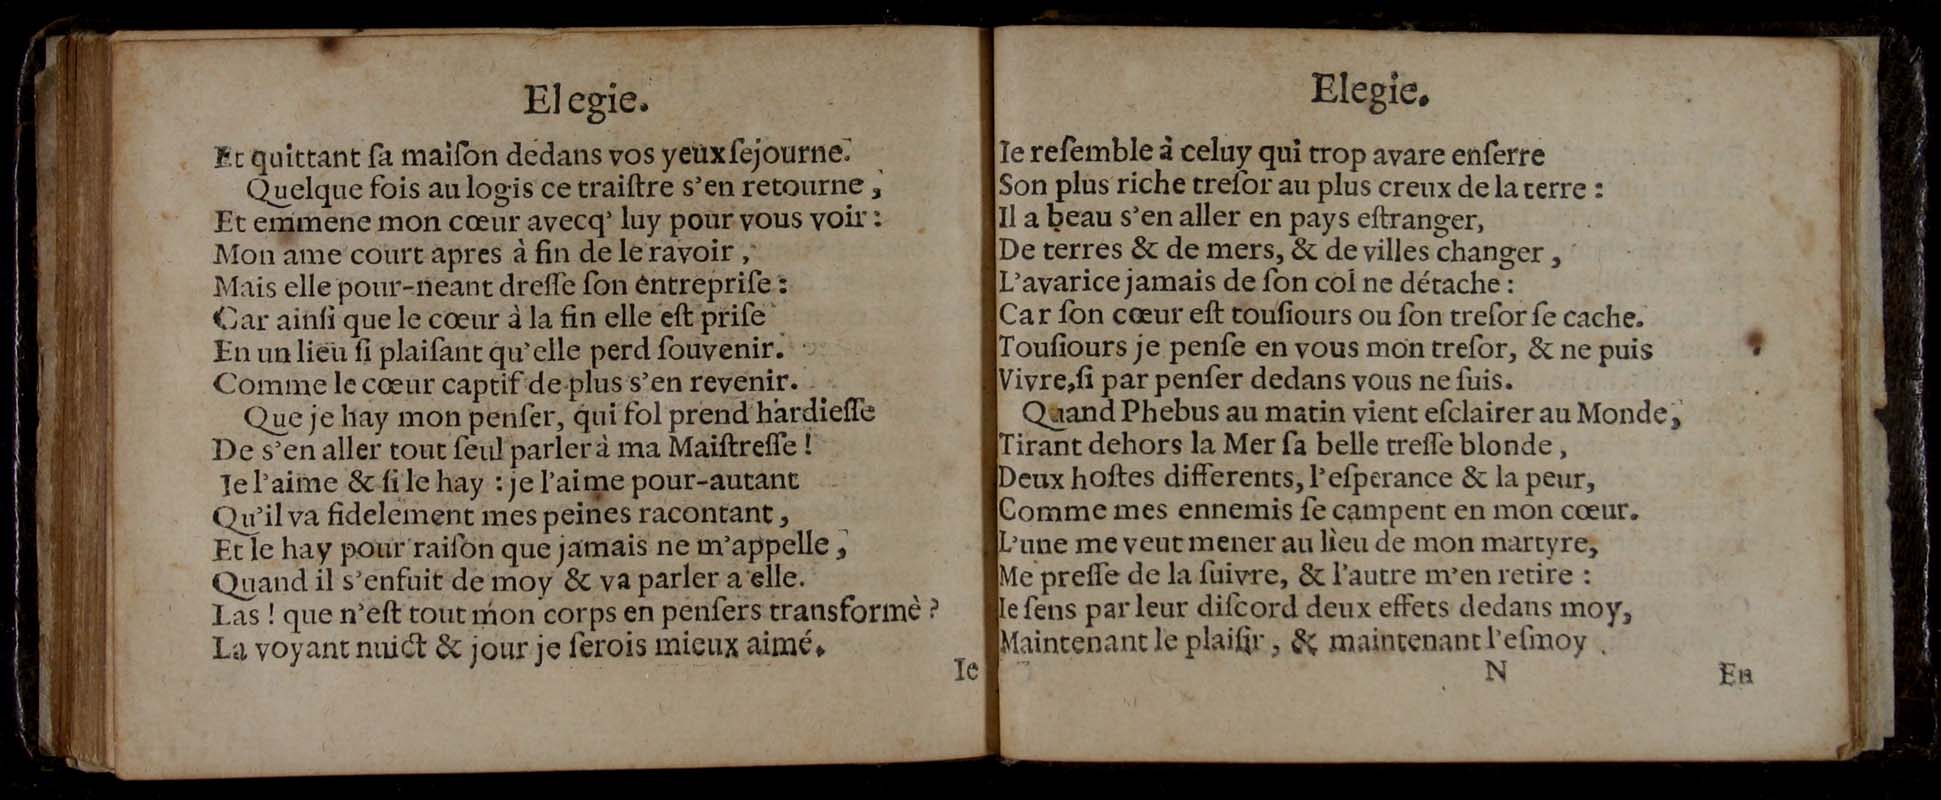 Elegie.
Et quittant ſa maiſon dedans vos yeux ſejourne.
Quelque fois au logis ce traiſtre s'en retourne,
Et emmene mon cœur avecq' luy pour vous voir :
Mon ame court apres à fin de le ravoir ,
Mais elle pour-neant dreſſe ſon entrepriſe :
Car ainſi que le cœur à la fin elle eſt priſe
En un lieu ſi plaiſant qu'elle perd ſouvenir.
Comme le cœur captif de plus s'en revenir.
Que je hay mon penſer, qui fol prend hardieſſe
De s'en aller tout ſeul parler à ma Maiſtreſſe !
Ie l'aime & ſi le hay : je l'aime pour-autant
Qu'il va fidelement mes peines racontant ,
Et le hay pour raiſon que jamais ne m'appelle ,
Quand il s'enfuit de moy & va parler a elle.
Las ! que n'eſt tout mon corps en penſers transformè ?
La voyant nuict & jour je ſerois mieux aimé.
Ie
Elegie.
Ie reſemble à celuy qui trop avare enſerre
Son plus riche treſor au plus creux de la terre :
Il a beau s'en aller en pays eſtranger,
De terres & de mers, & de villes changer ,
L'avarice jamais de ſon col ne détache :
Car ſon cœur eſt touſiours ou ſon treſor ſe cache.
Touſiours je penſe en vous mon treſor, & ne puis
Vivre,ſi par penſer dedans vous ne ſuis.
Quand Phebus au matin vient eſclairer au Monde,
Tirant dehors la Mer ſa belle treſſe blonde ,
Deux hoſtes differents, l'eſperance & la peur,
Comme mes ennemis ſe campent en mon cœur.
L'une me veut mener au lieu de mon martyre,
Me preſſe de la ſuivre, & l'autre m'en retire :
Ie ſens par leur diſcord deux effets dedans moy,
Maintenant le plaiſir , & maintenant l'eſmoy .
N
En